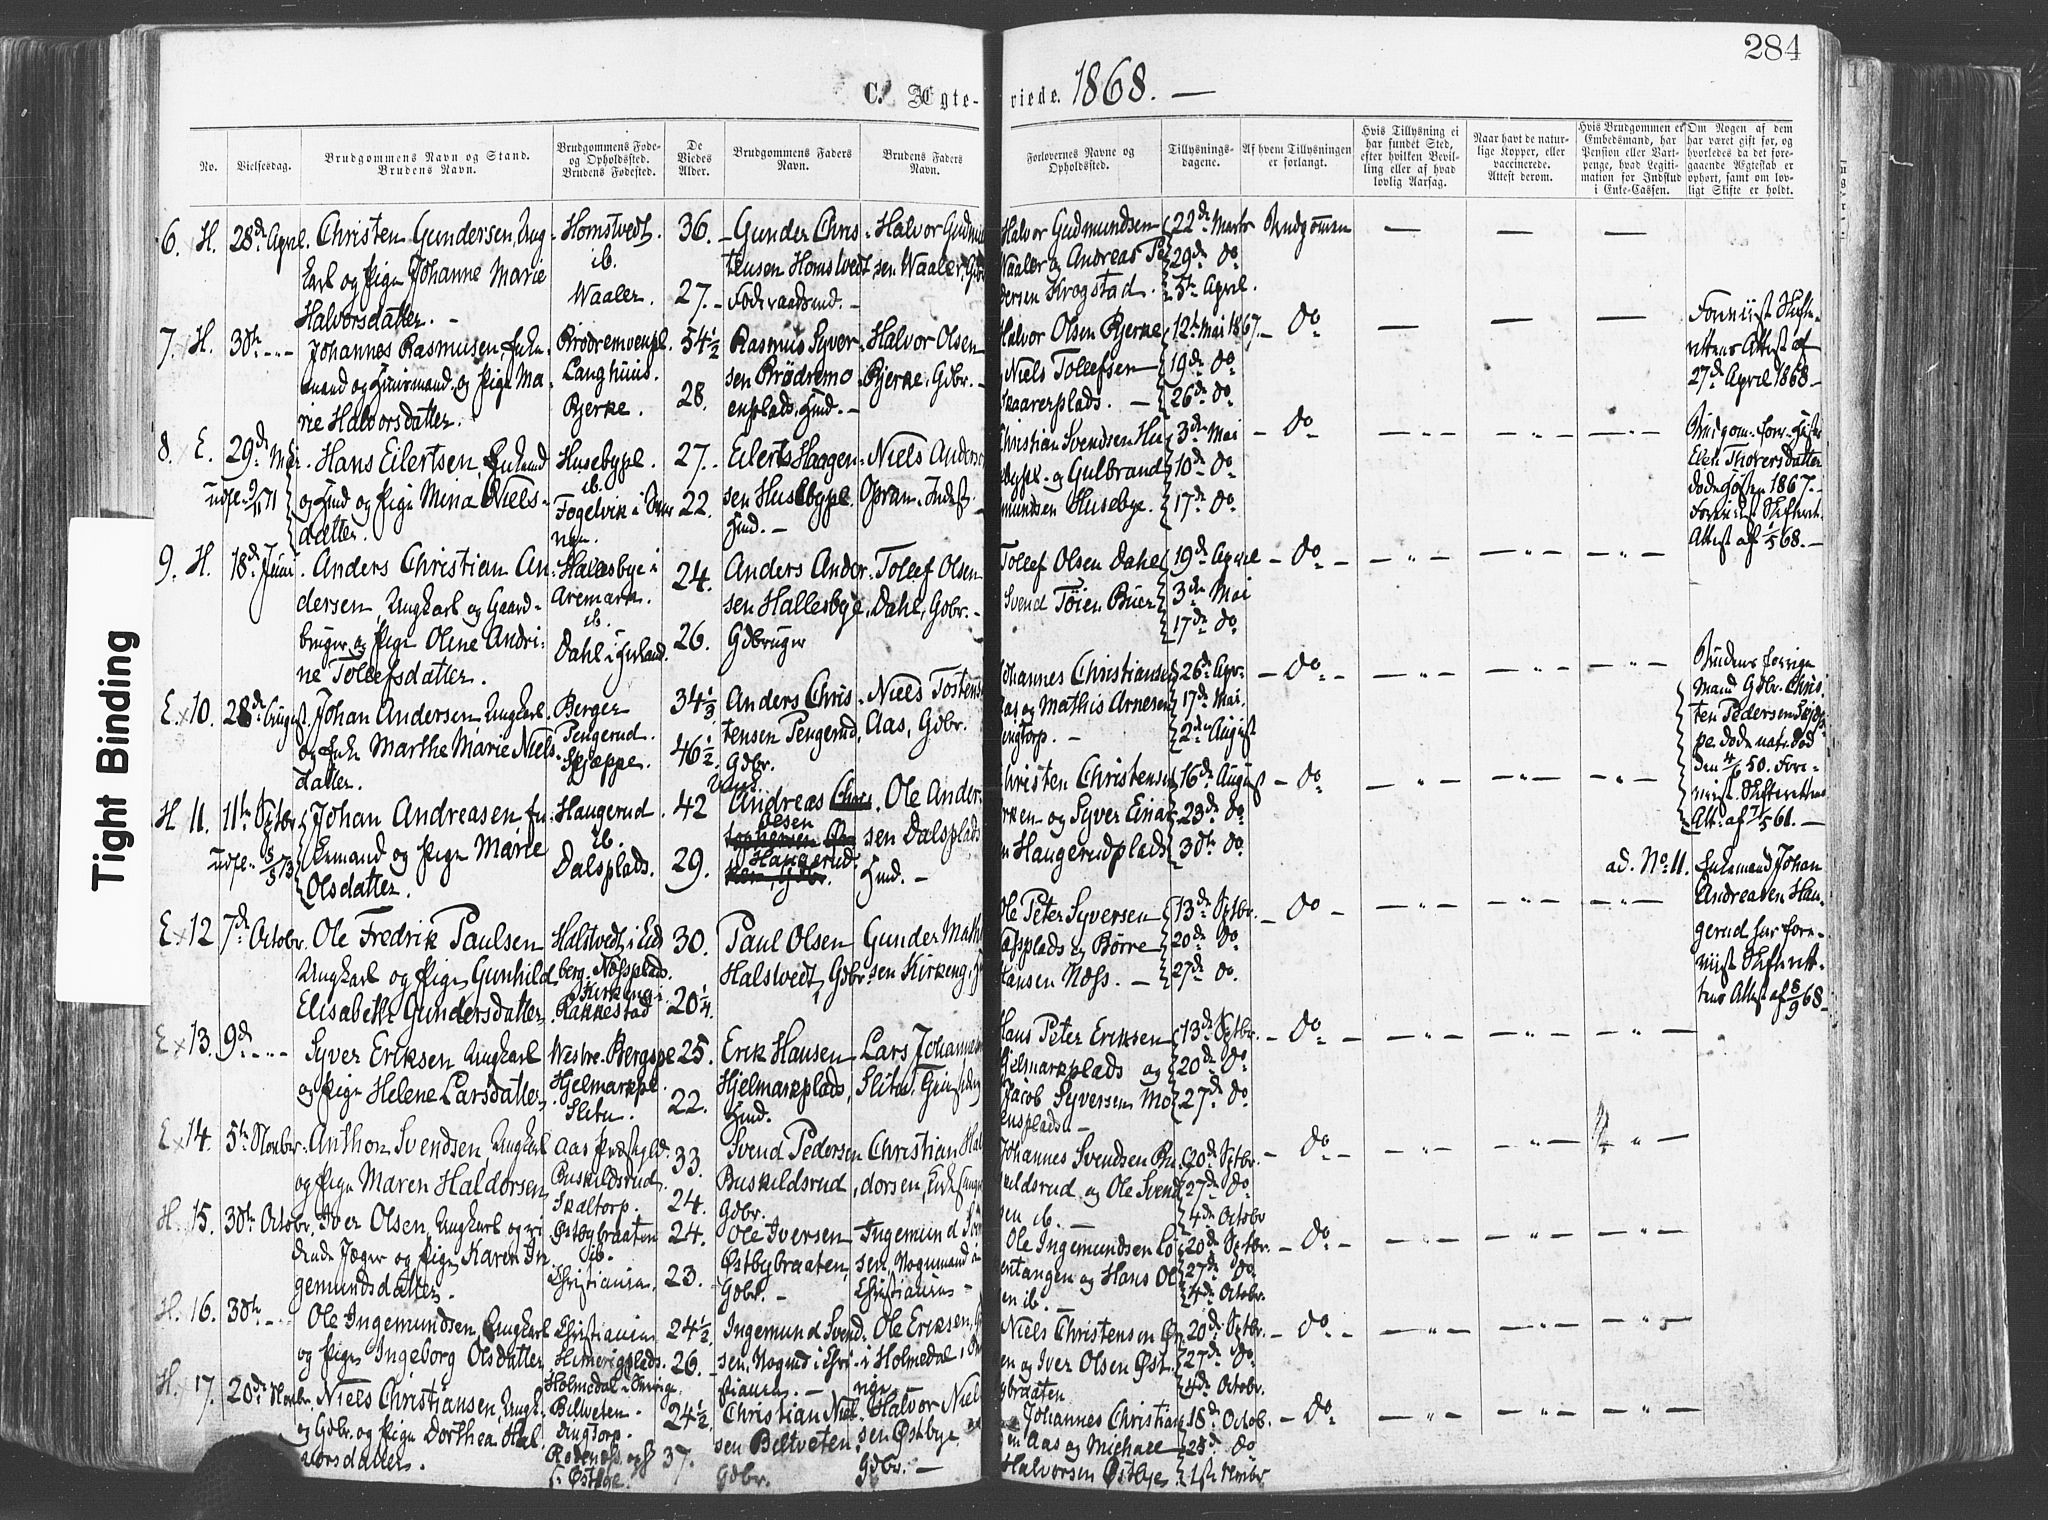 284
C. Ægte-viede. 1868. —
No.
Vielsesdag.
Brudgommens Navn og Stand.
Brudens Navn.
Brudgommens Føde-
og Opholdssted.
Brudens Fødested.
De
Viedes
Alder.
Brudgommens Faders
Navn.
Brudens Faders
Navn.
Forlovernes Navne og
Opholdssted.
Tillysnings-
dagene.
Af hvem Tillysningen
er forlangt.
Hvis Tillysning ei
har fundet Sted,
efter hvilken Bevil-
ling eller af hvad
lovlig Aarsag.
Naar havt de natur-
lige Kopper, eller
vaccinerede.
Attest derom.
Hvis Brudgommen er
Embedsmand, har
Pension eller Vart-
penge, hvad Legiti-
mation for Indskud
i Enke-Cassen.
Om Nogen af dem
har været gift før, og
hvorledes da det fore-
gaaende Ægteskab er
ophørt, samt om lov-
ligt Skifte er holdt.
6. H. 28de April. Christen Gundersen, Ung-
karl og Pige Johanne Marie
Halvorsdatter. —
Homstvedt.
ib.
Waaler.
36.
27.
Gunder Chris-
tensen Homstvedt
Føderaadsmd. —
Halvor Gudmun
sen Waaler, Gdb
Halvor Gudmundsen
Waaler og Andreas Pe
dersen Krogstad.
22de Marts
29de do
5te April.
Brudgommen
— — —
7. H. 30te — " — Johannes Rasmusen, Enke-
mand og Huusmand, og Pige Ma-
rie Halvorsdatter.
Brødremoenpl.
Langhuus.
Bjerke.
54½
28.
Rasmus Syver-
sen Brødremo-
enplads, Hmd. —
Halvor Olsen
Bjerke, Gdbr. —
Halvor Olsen Bjerke
Niels Tollefsen
Skaarerplads. —
12te Mai 1867.
19de do
26de do
— do
— — —
Foreviist Skifte-
rettens Attest af
27de April 1868 —
8. E. 29de Mai. Hans Eilertsen, Enkemd
og Hmd og Pige Mina Niels-
datter.
udfl. 9/11 71
Husebypl.
ib.
Fogelvik i Sver
rige.
27.
22.
Eilert Haagen-
sen Husebypl.
Hmd. —
Niels Anders
Opram, Indst.
Christian Svendsen Hu
sebypl. og Gulbrand
mundsen Husebye.
3de Mai
10de do
17de do
— do
— " — — " — — " —
Brudgom. forr. Hustru
Ellen Thorersdatter
døde Høsten 1867. —
Foreviist Skifteret.
Attest af 1/5 68. —
9. H. 18de Juni. Anders Christian An-
dersen, Ungkarl og Gaard-
bruger og Pige Oline Andri-
ne Tollefsdatter.
Hallesbye i
Aremark.
ib.
Dahl i Enland.
24.
26.
Anders Ander-
sen Hallesbye,
Gdbruger
Tollef Olsen
Dahl, Gdbr. —
Tollef Olsen Dahl
Svend Tøien Buer
19de April
3de Mai
17de do
— do —
— " — — " — — " —
E. 10. 28de August. Johan Andersen, Ungkarl
og Enke Marthe Marie Niels-
datter.
Berger
Pengerud.
Skjeppe.
34⅓
46½
Anders Chris-
tensen Pengerud,
Gdbr.
Niels Tostens
Aas, Gdbr.
Johannes Christiansen
Aas og Mathis Arnesen
engtorp. —
26de Apr.
17de Mai.
2de August
— do —
— " — — " — — " —
Brudens forrige
Mand Gdbr. Chris
ten Pedersen Skjep-
pe. døde nat. Død
den 4/6 50. Fore-
viist Skifterettens
Att. af 7/5 61. —
H. 11. 11te Septbr. Johan Andreasen, En-
kemand og Pige Marie
Olsdatter.
udfl. 5/5 73
Haugerud
ib.
Dalsplads.
42
29.
Andreas
Olsen
Haugerud.
Ole Ander-
sen Dalsplads
Hmd. —
Christen Christensen
og Syver Einar
Haugerudplads
16de August
23de do
30te do
— do
— " — — " — — " —
ad. No. 11. Enkemand Johan
Andreasen Hau-
gerud har fore-
viist Skifteret-
tens Attest af 8/9 68 —
E. 12 7de Octobr. Ole Fredrik Paulsen
Ungkarl og Pige Gunhild
Elisabeth Gundersdatter.
Halstvedt i Eid
berg. Næssplads.
Kirkeng i
Rakkestad
30.
20¼.
Paul Olsen
Halstvedt, Gdbr.
Gunder Math
sen Kirkeng,
Ole Peter Syversen
Næssplads og Børre
Hansen Næss. —
13de Septbr.
20de do
27de do.
— do —
— " — — " — — " —
E. 13. 9de — " — Syver Eriksen, Ungkarl
og Pige Helene Larsdatter.
Westre Bergspl
Hjelmarkpl.
Slitu.
25.
22.
Erik Hansen
Hjelmarkplads,
Hmd.
Lars Johannes
Slitu.
Hans Peter Eriksen
Hjelmarkplads og
Jacob Syversen Mo
ensplads —
13de Septbr.
20de do
27de do
— do —
— " — — " — — " —
E. 14. 5te Novbr. Anthon Svendsen, Ungkarl
og Pige Maren Haldorsen,
Aas Præstgld.
Buskildsrud.
Skaltorp.
33.
24.
Svend Pedersen
Buskildsrud,
Gdbr.
Christian Hal
dorsen,
Johannes Svendsen Bu
skildsrud og Ole Svend
sen ib. —
20de Septbr.
27de do
4de Octobr
— do —
— " — — " — — " —
H. 15. 30te Octobr. Iver Olsen, Ungkarl og ri-
dende Jæger og Pige Karen In-
gemundsdatter.
Østbybraaten
ib.
Christiania.
24.
23.
Ole Iversen
Østbybraaten,
Gdbr. —
Ingemund Sve
sen, Vognmand i
Christiania —
Ole Ingemundsen Lø
entangen og Hans Ol
sen ib. —
20de Septbr.
27de do
4de Octobr.
— do —
— " — — " — — " —
H. 16. 30te — " — Ole Ingemundsen, Ungkarl
og Pige Ingeborg Olsdatter
Christiania
Holmedal i Sverige
24½
26.
Ingemund Svend-
sen, Vognmd i Chri-
stiania. —
Ole Eriksen,
i Holmedal i Sve
rige
Niels Christensen
en og Iver Olsen Øst
bybraaten
20de Septbr.
27de do
4de Octobr.
— do —
— " — — " — — " —
H. 17. 20de Novbr. Niels Christiansen, Ungk.
og Gdbr. og Pige Dorthea Hal-
vorsdatter.
Biltveten.
Engtorp.
Rødenæss
Østbye.
24½
37.
Christian Niel-
sen Biltveten,
Gdbr.
Halvor Niel
sen Østbye,
Gdbr. —
Johannes Christian
sen Aas og Michael
Halvorsen Østbye
18de Octob.
25de do
1ste Novbr
— do —
— " — — " — — " —
Tight Binding